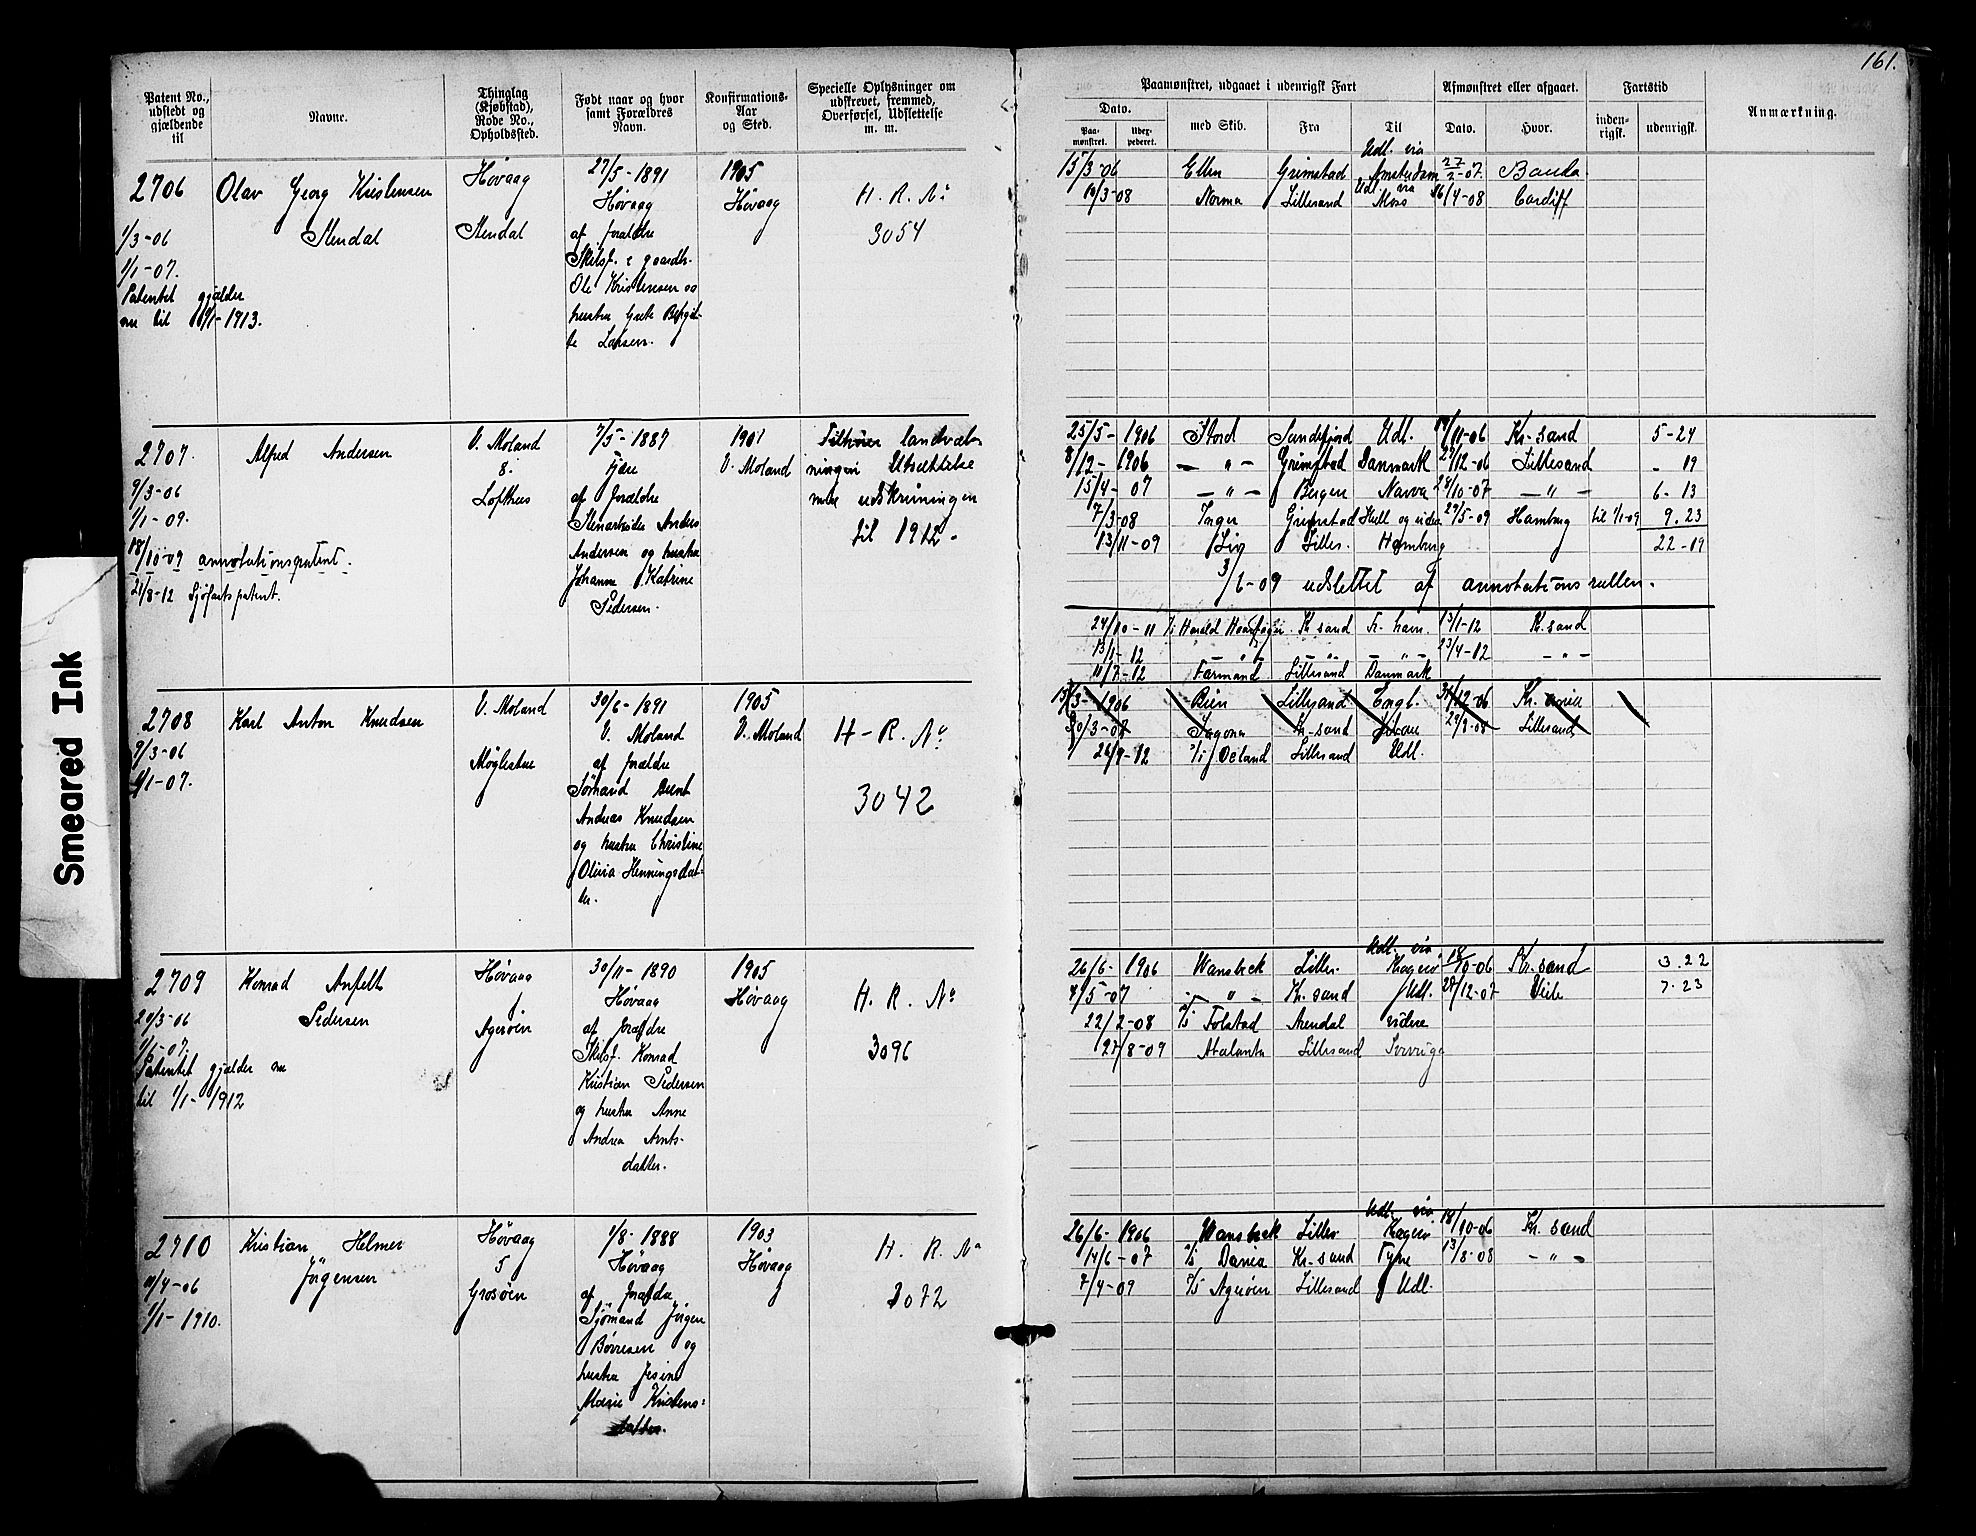 161.
Patent No., udstedt og gjældende til
Navne.
Thinglag (Kjøbstad), Rode No., Opholdssted.
Født naar og hvor samt Forældres Navn.
Konfirmations-Aar og Sted.
Specielle Oplysninger om udskrevet, fremmed, Overførsel, Udslettelse m. m.
Paamønstret, udgaaet i udenrigsk Fart
Dato.
Paa-mønstret.
Uder-pederet.
med Skib.
Fra
Til
Afmønstret eller afgaaet.
Dato.
Hvor.
Fartstid
inden-rigsk.
udenrigsk.
Anmærkning.
2706
1/3-06
1/1-07.
Patentet gjælder
nu til 1/1-1913.
Olav Georg Kristensen
Stendal
Høvaag
Stendal
27/5-1891
Høvaag
af forældre
Skibsf. & gaardb.
Ole Kristensen og
hustru Grete Birgit-
te Larsen.
1905
Høvaag
H. R. No
3054
Udl. via
15/3-06 Ellen Grimstad Amsterdam 27/2-07.
Udl via
10/3-08 Norma Lillesand Moss 16/4-08 Cardiff
2707.
9/3-06
1/1-09.
18/10-09 annotationspatent.
21/8-12 Sjøfartspatent.
Alfred Andersen
V. Moland
8.
Lofthus
7/5-1887
Fjære
af forældre
Stenarbeider Anders
Andersen og hustru
Johanne Katrine
Pedersen.
1901
V. Moland
landvæb-
ningen Utsættelse
med udskrivningen
til 1912.
25/5-1906 Stord Sandefjord Udl. 11-06 Kr.sand 5-24
8/12-1906 — „ — Grimstad Danmark 29/12-06 Lillesand - 19
15/4-07 — „ — Bergen Narva 28/10-07 — „ — 6-13
7/3-08 Inger Grimstad Hull og videre 29/5-09 Hamburg til 1/1-09 9.23
13/11-09 Liv Lilles. Hamburg 22-19
3/6-09 udslettet af annotationsrullen.
24/10-11 Harald Haarfager Kr sand Fr. havn. 13/1-12 Kr.sand
13/1-12 — „ — — „ — — „ — 23/4-12 — „ —
11/7-12 Farmand Lillesand Danmark
2708
9/3-06
1/1-07.
Karl Anton Knudsen
V. Moland
Møglestue
30/6-1891
V. Moland
af forældre
Sømand Bernt
Andreas Knudsen
og hustru Christine
Olivia Henningsdat-
ter.
1905
V. Moland
H-R. No
3042
15/3-1906 Bien Lillesand Engl. 31/12-06
30/3-07 Kr-sand 29/8-08 Lillesand
26/9-12 Oeland Lillesand Udl.
2709
20/3-06
1/1-07.
Patentet gjælder nu
til 1/1-1912
Konrad Anfelt
Pedersen
Høvaag
Agerøen
30/11-1890
Høvaag
af forældre
Skibsf. Konrad
Kristian Pedersen
og hustru Anne
Andrea Arnts-
datter.
1905
Høvaag
H. R. No
3096
Udl. via
26/6-1906 Wansbeck Lilles. Kragerø 18/10-06 Kr.sand 3.22
4/5-07 - „ - Kr.sand Udl. 28/12-07 Veile 7.23
22/2-08 Tolstad Arendal videre
27/8-09 Atalanta Lillesand
2710
10/4-06
1/1-1910.
Kristian Helmer
Jörgensen
Høvaag
5
Grosøen
1/8-1888
Høvaag
af forældre
Sjömand Jörgen
Börresen og
hustru Jesine
Marie Kristens-
datter.
1903
Høvaag
H. R. No
3072
Udl. via
26/6-1906 Wansbeck Lilles Kragerø 18/10-06 Kr.sand
14/6-07 Dania Kr.sand Tyne 13/8-08 - „ -
7/4-09 Agerøen Lillesand Udl.
Smeared Ink